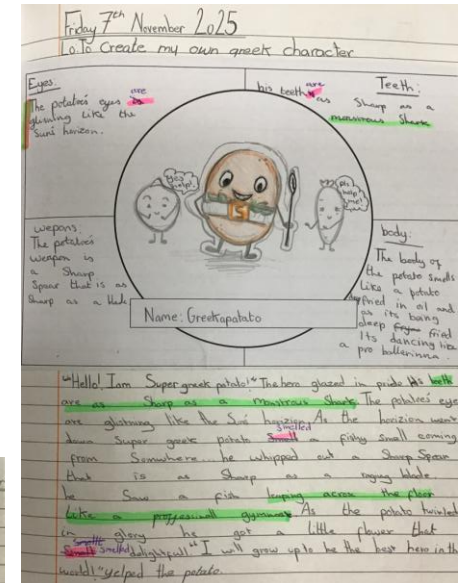 Friday 7th November 2025
L.o: To Create my own greek character
Eyes:
The potatoes eyes are
glistning Like the
Suns horizon.
Teeth:
his teeth are as Sharp as a
monstrous Shark
wepons:
The potatoes
weapon is
a Sharp
Spear that is as
Sharp as a blade
body:
The body of
the potato smells
Like a potato
deep fried in oil and
as its being
deep fried
Its dancing like
a pro ballerinna.
pls
help
me!
Name: Greekapatato
"Hello! I am Super greek potato!" The hero glazed in pride His teeth
are as Sharp as a monstrous Shark. The potatoes eye
are glistning like the Suns horizion. As the horizion went
down Super greek potato Smelled a fishy smell coming
from Somewhere... he whipped out a Sharp Spear
that is as Sharp as a raging blade.
he Saw a fish leaping across the floor
Like a proffessinall gymnast. As the potato twirled
in glory he got a little flower that
Smelled delightfull "I will grow up to be the best hero in the
world!" yelped the potato.